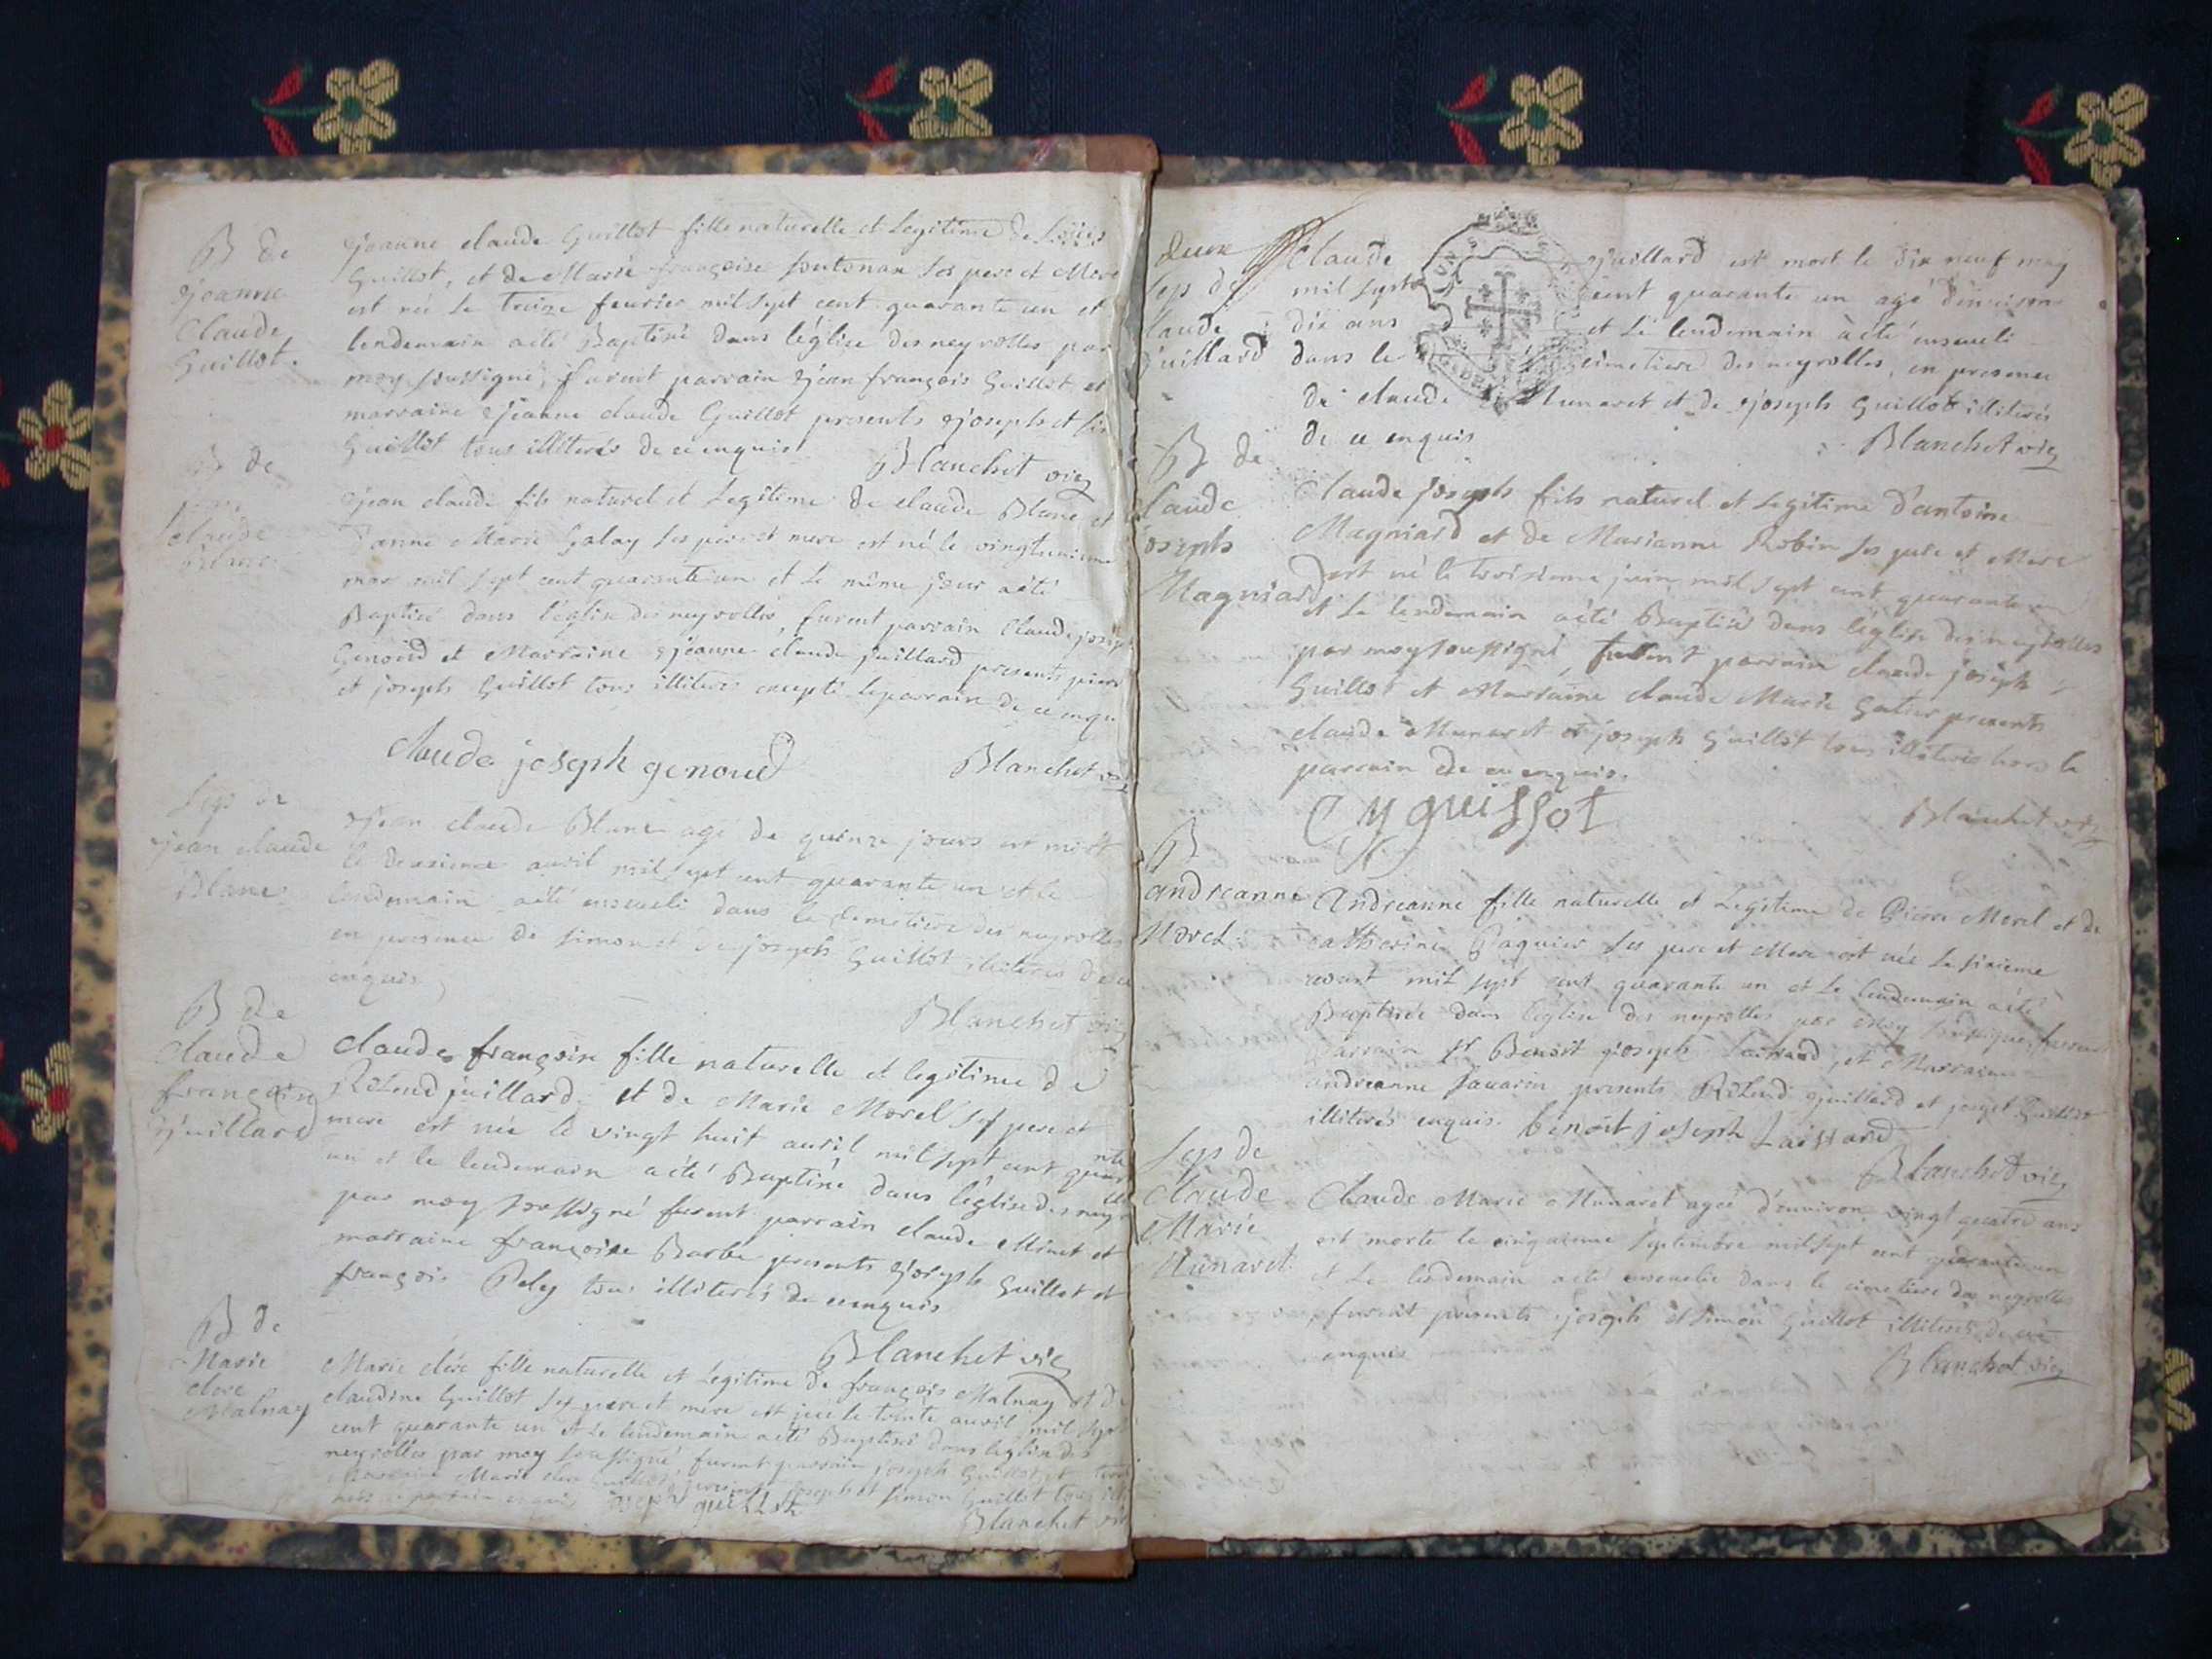 B de
jeanne
Claude
Guillot.
jeanne claude Guillot fille naturelle et Legitime de
Guillot, et de Marie françoise fontenax ses pere et Mere
est née Le treize feurier mil sept cent quarante un et
lendemain aété Baptisé dans léglise des neyrolles par
moy soussigné, furent parrain jean françois Guillot et
marraine jeanne claude Guillot presents joseph et
Guillot tous illiterés de ce enquis
Blanchet vic
B de
claude
Blanc
jean claude fils naturel et Legitime de claude Blanc et
d'anne Marie Galay ses pere et mere est né le
mar mil sept cent quarante un et Le même jour aété
Baptisé dans léglise des neyrolles, furent parrain Claude joseph
Genoud et Marraine jeanne claude juillard presents
et joseph Guillot tous illiteres excepté le parrain de ce enqu
claude joseph genoud
Blanchet vic
Seps de
jean claude
Blanc
jean claude Blanc agé de quinze jours est mort
le deuxieme auril mil sept cent quarante un et le
lendemain aété enseueli dans le cimetiere des neyrolles
en presence de simon et de joseph Guillot illiteres de ce
enquis
Blanchet vic
B de
Claude
françoise
juillard
Claude françoise fille naturelle et legitime de
Roland juillard, et de Marie Morel ses pere et
mere est née le vingt huit auril mil sept cent quarante
un et le lendemain aété Baptisé dans léglise des neyrolles
par moy soussigné furent parrain claude Minet et
marraine françoise Barbe presents joseph Guillot et
françois Pely tous illiterés de ce enquis
Blanchet vic
B de
Marie
clere
Malnay
Marie clere fille naturelle et Legitime de françois Malnay et de
claudine Guillot ses pere et mere est née le trente auril mil sept
cent quarante un et Le lendemain aété Baptisé dans léglise des
neyrolles par moy soussigné furent parrain joseph Guillot et
Marraine Marie clere Guillot, presents joseph et simon Guillot tous
parrain enquis joseph guillot
Blanchet vic
deux
Seps de
claude
juillard
Claude juillard est mort le dix neuf may
mil sept cent quarante un agé d'enuiron
dix ans et Le lendemain à été enseueli
dans le cimetiere des neyrolles, en presence
de claude Munaret et de joseph Guillot illiterés
de ce enquis
Blanchet vic
B de
claude
joseph
Magniard
Claude joseph fils naturel et Legitime d'antoine
Magniard et de Marianne Robin ses pere et Mere
est né le troisieme juin mil sept cent quarante un
et Le lendemain aété Baptisé dans léglise des neyrolles
par moy soussigné, furent parrain claude joseph
Guillot et Marraine claude Marie Galier presents
claude Munaret et joseph Guillot tous illiterés hors le
parrain de ce enquis.
guissot
Blanchet vic
B
andreanne
Morel
Andreanne fille naturelle et Legitime de Pierre Morel et de
catherine Paquier ses pere et Mere est née Le sixieme
aoust mil sept cent quarante un et Le lendemain aété
Baptisée dans léglise des neyrolles par moy soussigné, furent
parrain sr Benoit joseph Laissard, et Marraine
andreanne sauarin presents Roland juillard et joseph Guillot
illiterés enquis. benoit joseph Laissard
Blanchet vic
Seps de
claude
Marie
Munaret
Claude Marie Munaret agée d'enuiron vingt quatre ans
est morte le cinquieme septembre mil sept cent quarante un
et Le lendemain aété enseuelie dans le cimetiere des neyrolles
furent presents joseph et simon Guillot illiterés de ce
enquis
Blanchet vic